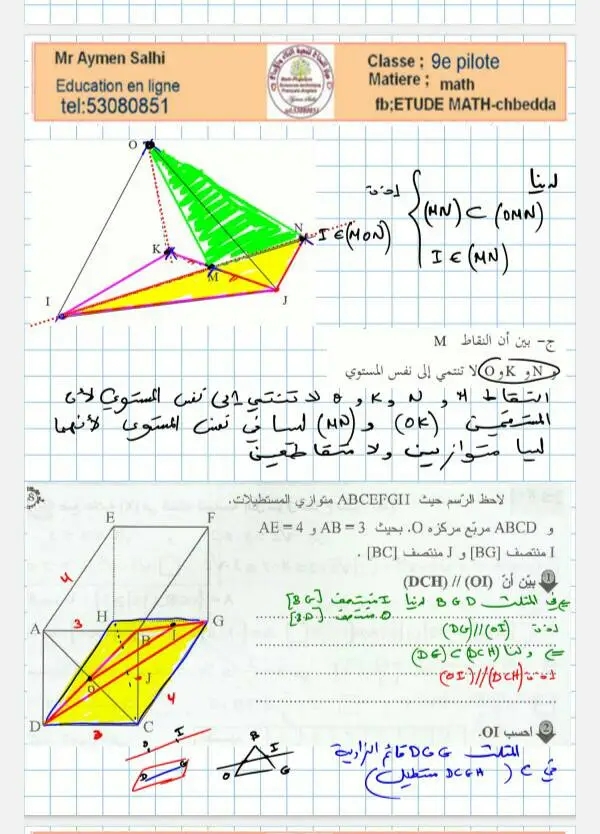 Mr Aymen Salhi
Education en ligne
tel:53080851
Classe ; 9e pilote
Matiere ; math
fb;ETUDE MATH-chbedda
O
K
N
M
I
J
لدينا
(MN) ⊂ (OMN)
I ∈ (MN)
إذن
I ∈ (MON)
ج- بين أن النقاط M
و N و K و O لا تنتمي إلى نفس المستوي
النقاط M و N و K و O لا تنتمي إلى نفس المستوي لأن
المستقيمين (OK) و (MN) ليسا في نفس المستوي لأنهما
ليسا متوازيين ولا متقاطعين
8
لاحظ الرسم حيث ABCEFGH متوازي المستطيلات.
و ABCD مربع مركزه O. بحيث AB = 3 و AE = 4
I منتصف [BG] و J منتصف [BC] .
1 بيّن أنّ (OI) // (DCH)
في المثلث BGD لدينا I منتصف [BG]
O منتصف [BD]
إذن (OI)//(DG)
ولنا (DG) ⊂ (DCH)
إذن (OI)//(DCH)
2 احسب OI.
المثلث DGG قائم الزاوية
في C (DCGH مستطيل)
E
F
4
H
G
A
3
B
I
O
J
4
D
3
C
I
D
G
B
I
O
G